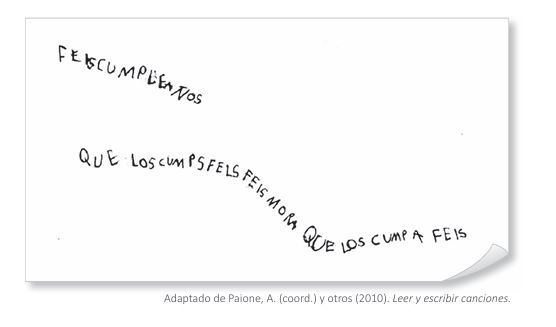 FEISCUMPLEAÑOS
QUE LOSCUMPSFELSFEISMORA QUE LOS CUMPA FEIS
Adaptado de Paione, A. (coord.) y otros (2010). Leer y escribir canciones.